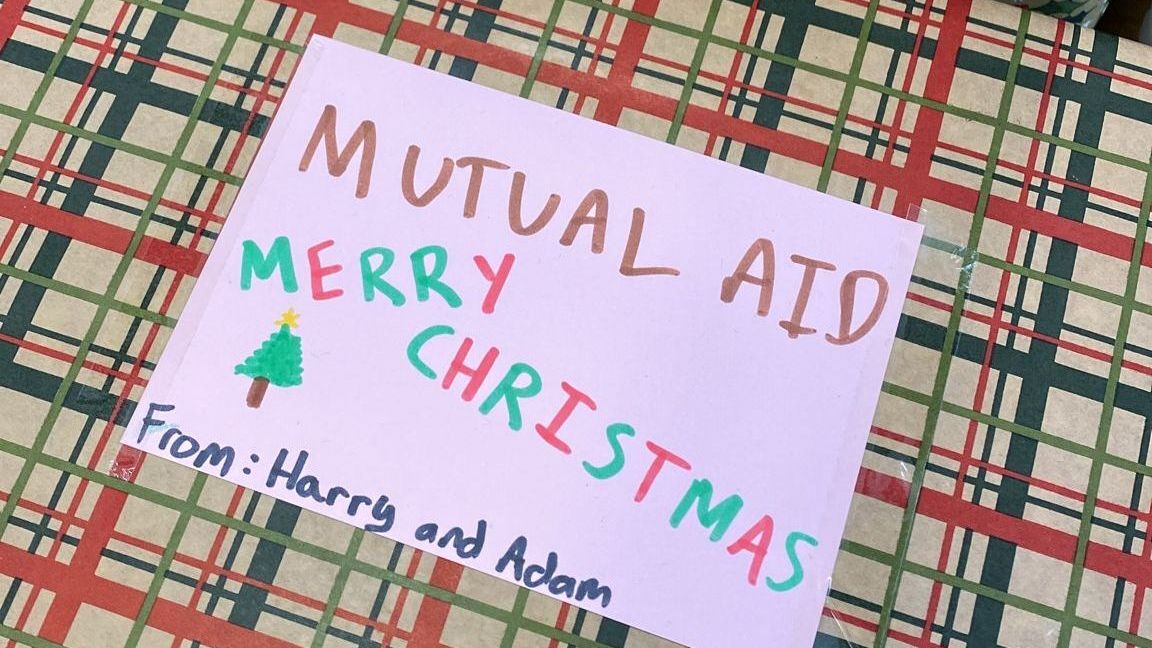 MUTUAL AID
MERRY
CHRISTMAS
From: Harry and Adam